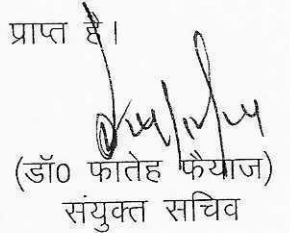 प्राप्त है।
(डॉ0 फातेह फैयाज)
संयुक्त सचिव